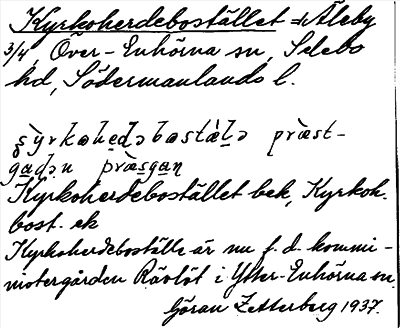 Kyrkoherdebostället = Åleby
3/4, Över-Enhörna sn, Selebo
hd, Södermanlands l.
präst-
Kyrkoherdebostället bek, Kyrkoh.
bost. ek
Kyrkoherdeboställe är nu f. d. kommi-
nistergården Rävlöt i Ytter-Enhörna sn.
Göran Zetterberg 1937.